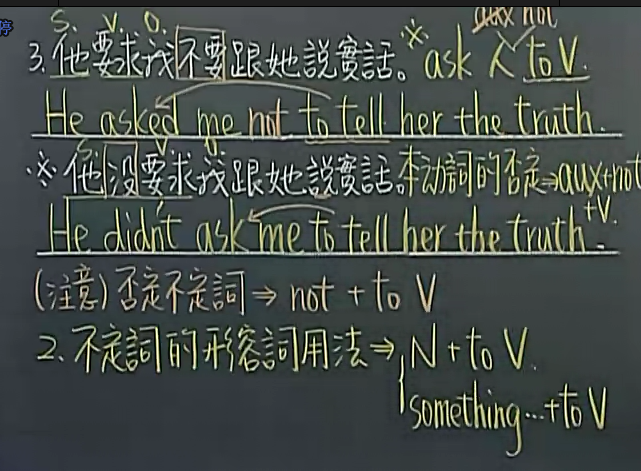 停
aux not
S. V. O.
3. 他要求我不要跟她說實話。※ ask 人 to V.
He asked me not to tell her the truth.
S. V O.
※ 他沒要求我跟她說實話。本动詞的否定⇒aux+not
+V.
He didn't ask me to tell her the truth.
(注意) 否定不定詞 ⇒ not + to V
2. 不定詞的形容詞用法⇒ N + to V.
something...+to V